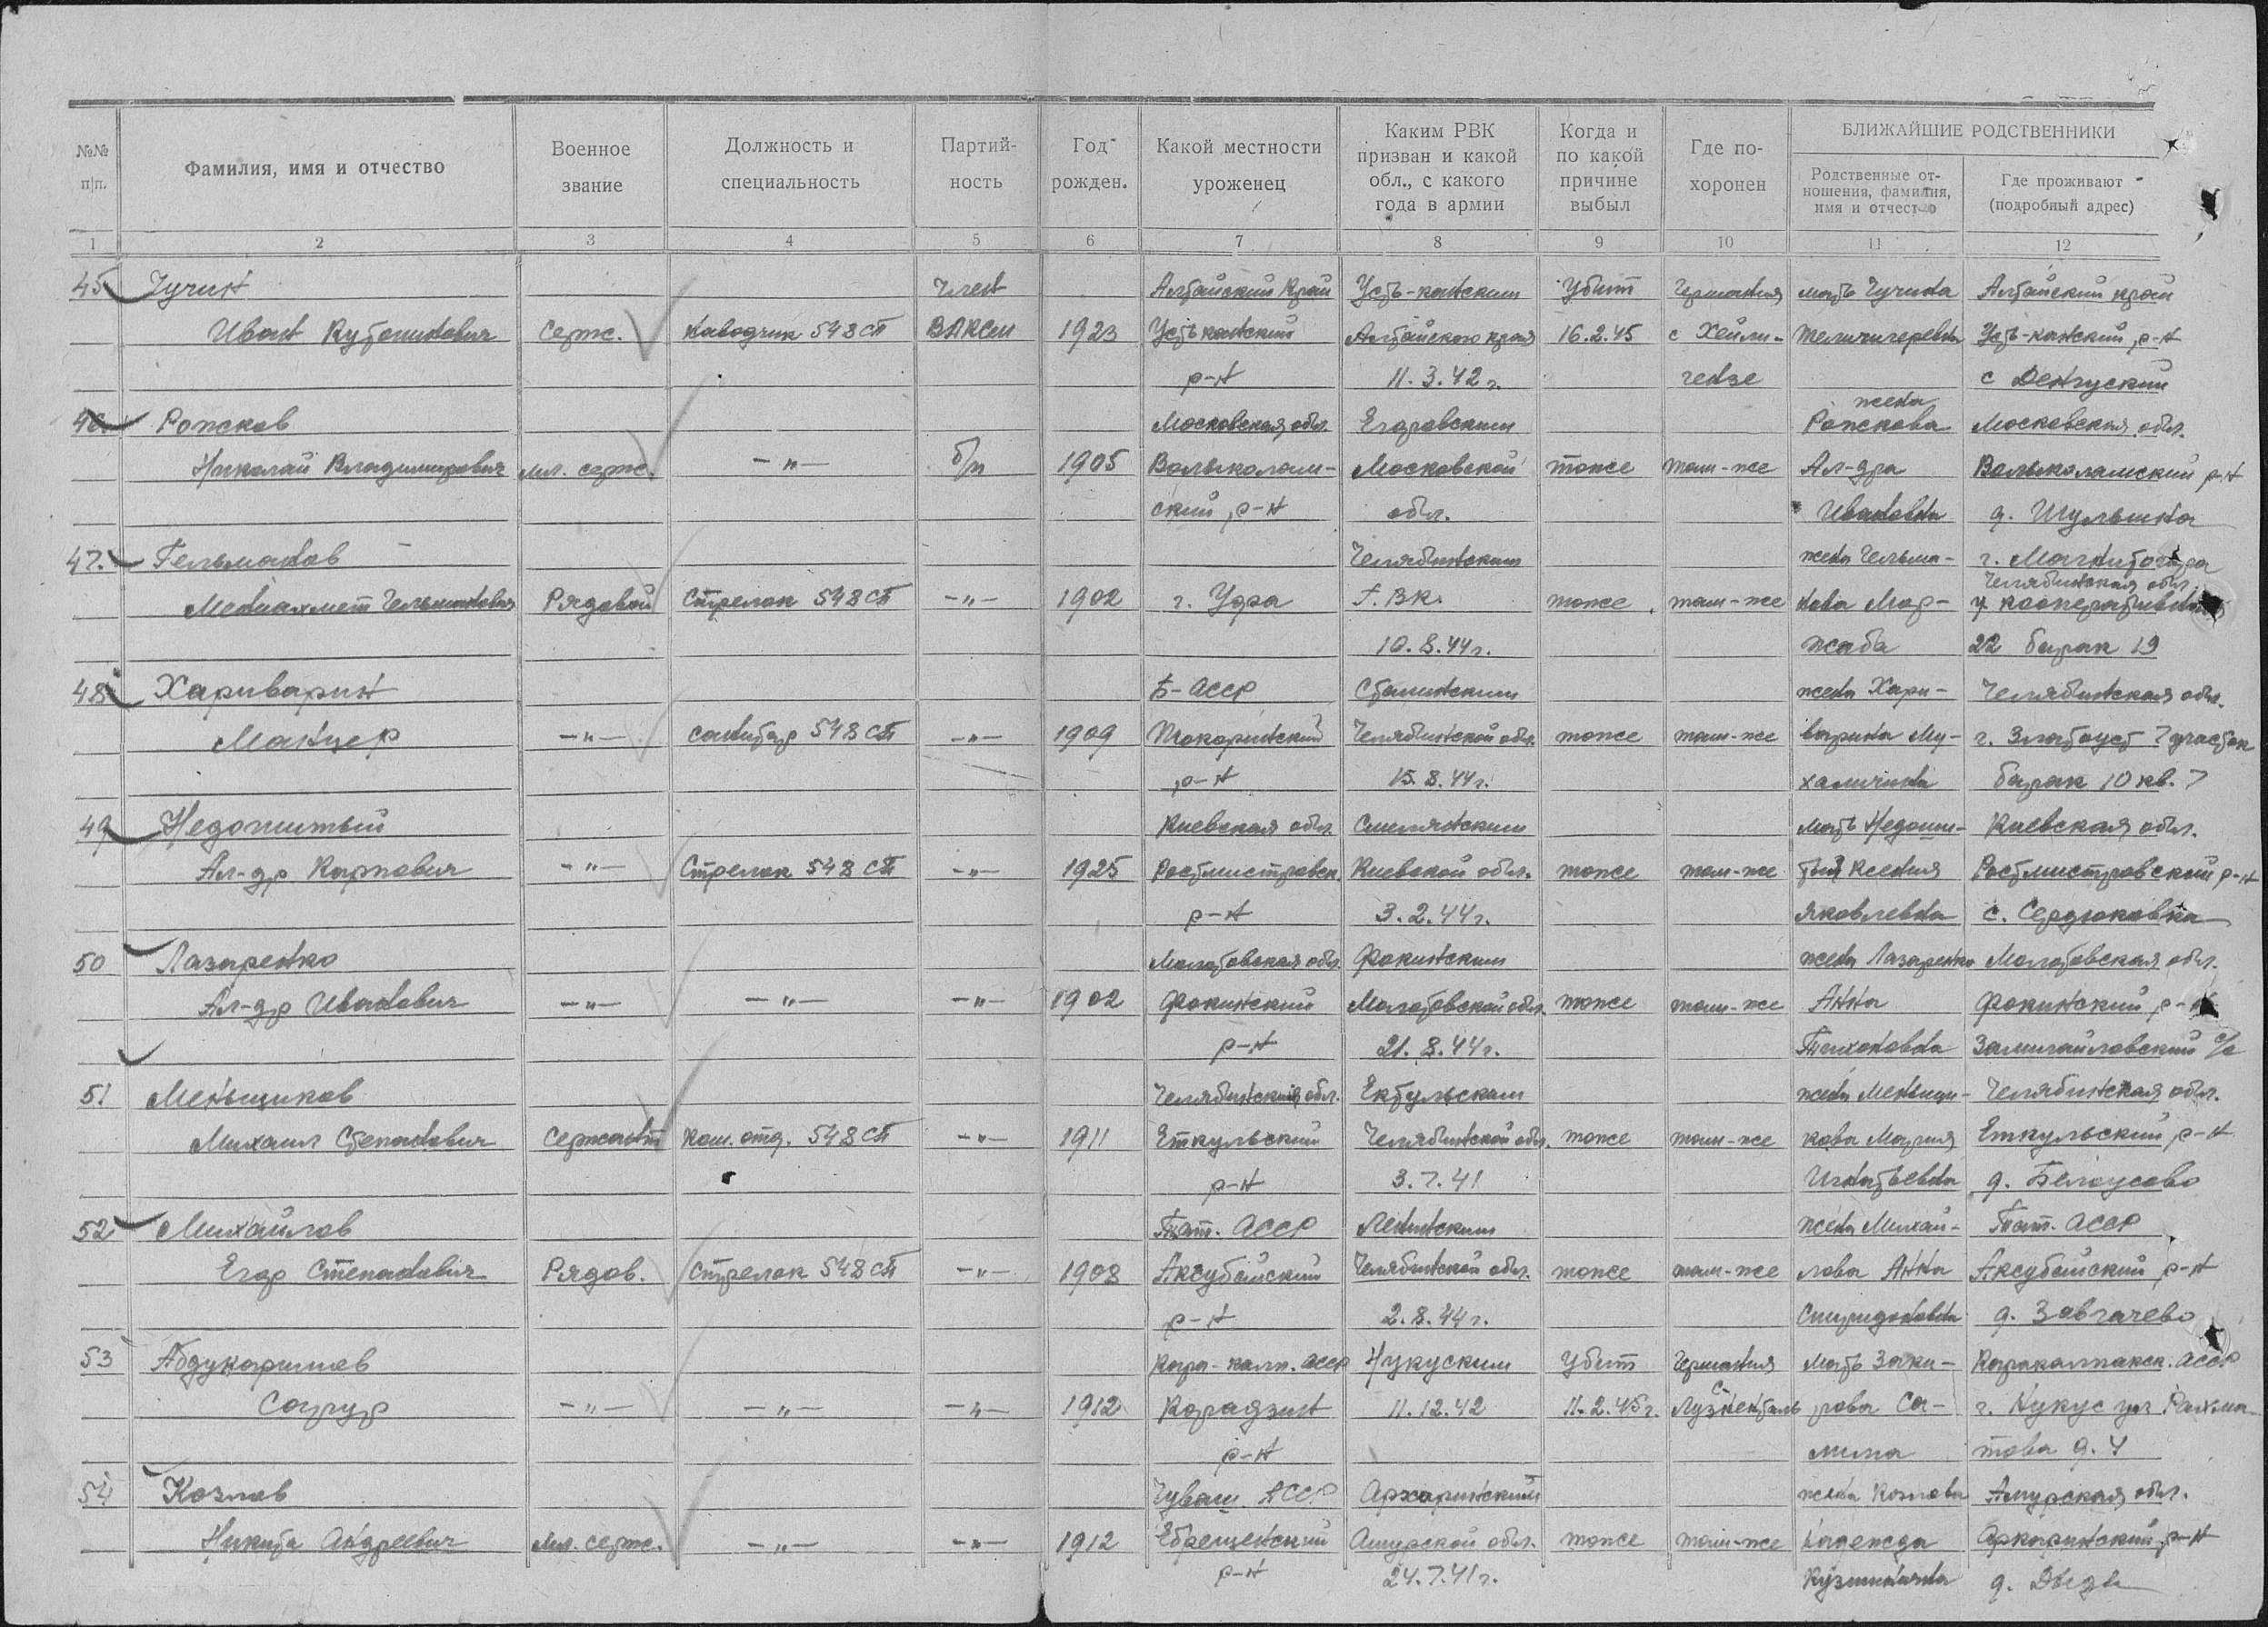 №№ п/п.
Фамилия, имя и отчество
Военное звание
Должность и специальность
Партий-ность
Год рожден.
Какой местности уроженец
Каким РВК призван и какой обл., с какого года в армии
Когда и по какой причине выбыл
Где по-хоронен
БЛИЖАЙШИЕ РОДСТВЕННИКИ
Родственные от-ношения, фамилия, имя и отчество
Где проживают (подробный адрес)
1 2 3 4 5 6 7 8 9 10 11 12
45 Чучин Член Алтайский Край Усть-канским Убит Германия мать Чучина Алтайский край
Иван Серж. Наводчик 548 сп ВЛКСМ 1923 Усть канский Алтайского края 16.2.45 с Хейли- Усть-канский р-н
р-н 11.3.42 г. гензе с
46 Рожков Московская обл. Егоровским жена Рожкова Московская обл.
Николай Владимирович мл. серж. -"- б/п 1905 Волыколам- Московской тоже там-же Ал-дра Волыколамский р-н
ский р-н обл. Ивановна д. Шульгина
47. Гельманов Челябинским жена Гельма- г. Магнитогора
Челябинская обл.
Рядовой Стрелок 548 сп -"- 1902 г. Уфа Г.ВК. тоже там-же нова Мар-
10.8.44 г. жаба 22 барак 19
48 Хариварин Б-АССР Сталинским жена Хари- Челябинская обл.
Манцер -"- санитар 548 сп -"- 1909 Челябинской обл. тоже там-же варина Му- г. Златоуст 7 участок
р-н 15.8.44 г. барак 10 кв. 7
49 Недожитый Киевская обл. Смелянским мать Недожи- Киевская обл.
Ал-др Карпович -"- Стрелок 548 сп -"- 1925 Ротмистровск. Киевской обл. тоже там-же тый Ксения Ротмистровский р-н
р-н 3.2.44 г. Яковлевна с. Сердюковка
50 Лазаренко Молотовская обл. Фокинским жена Лазаренко Молотовская обл.
Ал-др Иванович -"- -"- -"- 1902 Фокинский Молотовской обл. тоже там-же Анна Фокинский р-н
р-н 21.8.44 г. Тихоновна с/с
51 Меньщиков Челябинская обл. Еткульским жена Меньщи- Челябинская обл.
Михаил Степанович Сержант Ком. отд. 548 сп -"- 1911 Еткульский Челябинской обл. тоже там-же кова Мария Еткульский р-н
р-н 3.7.41 Игнатьевна д. Белоусово
52 Михайлов Тат. АССР Ленинским жена Михай- Тат. АССР
Егор Степанович Рядов. Стрелок 548 сп -"- 1908 Аксубайский Челябинской обл. тоже там-же лова Анна Аксубайский р-н
р-н 2.8.44 г. Спиридоновна д. Завгачево
53 Абдукаримов Кара-калп. АССР Нукуским Убит Германия мать Заки- Каракалпакск. АССР
Сапур -"- -"- -"- 1912 11.12.42 11.2.45 г. с. рова Са- г. Нукус ул. Рахма-
р-н лима това д. 4
54 Козлов Чуваш АССР Архаринским жена Козлова Амурская обл.
Никита Андреевич мл. серж. -"- -"- 1912 Амурской обл. тоже там-же Надежда Аркаринский р-н
р-н 24.7.41 г. Кузминична д.